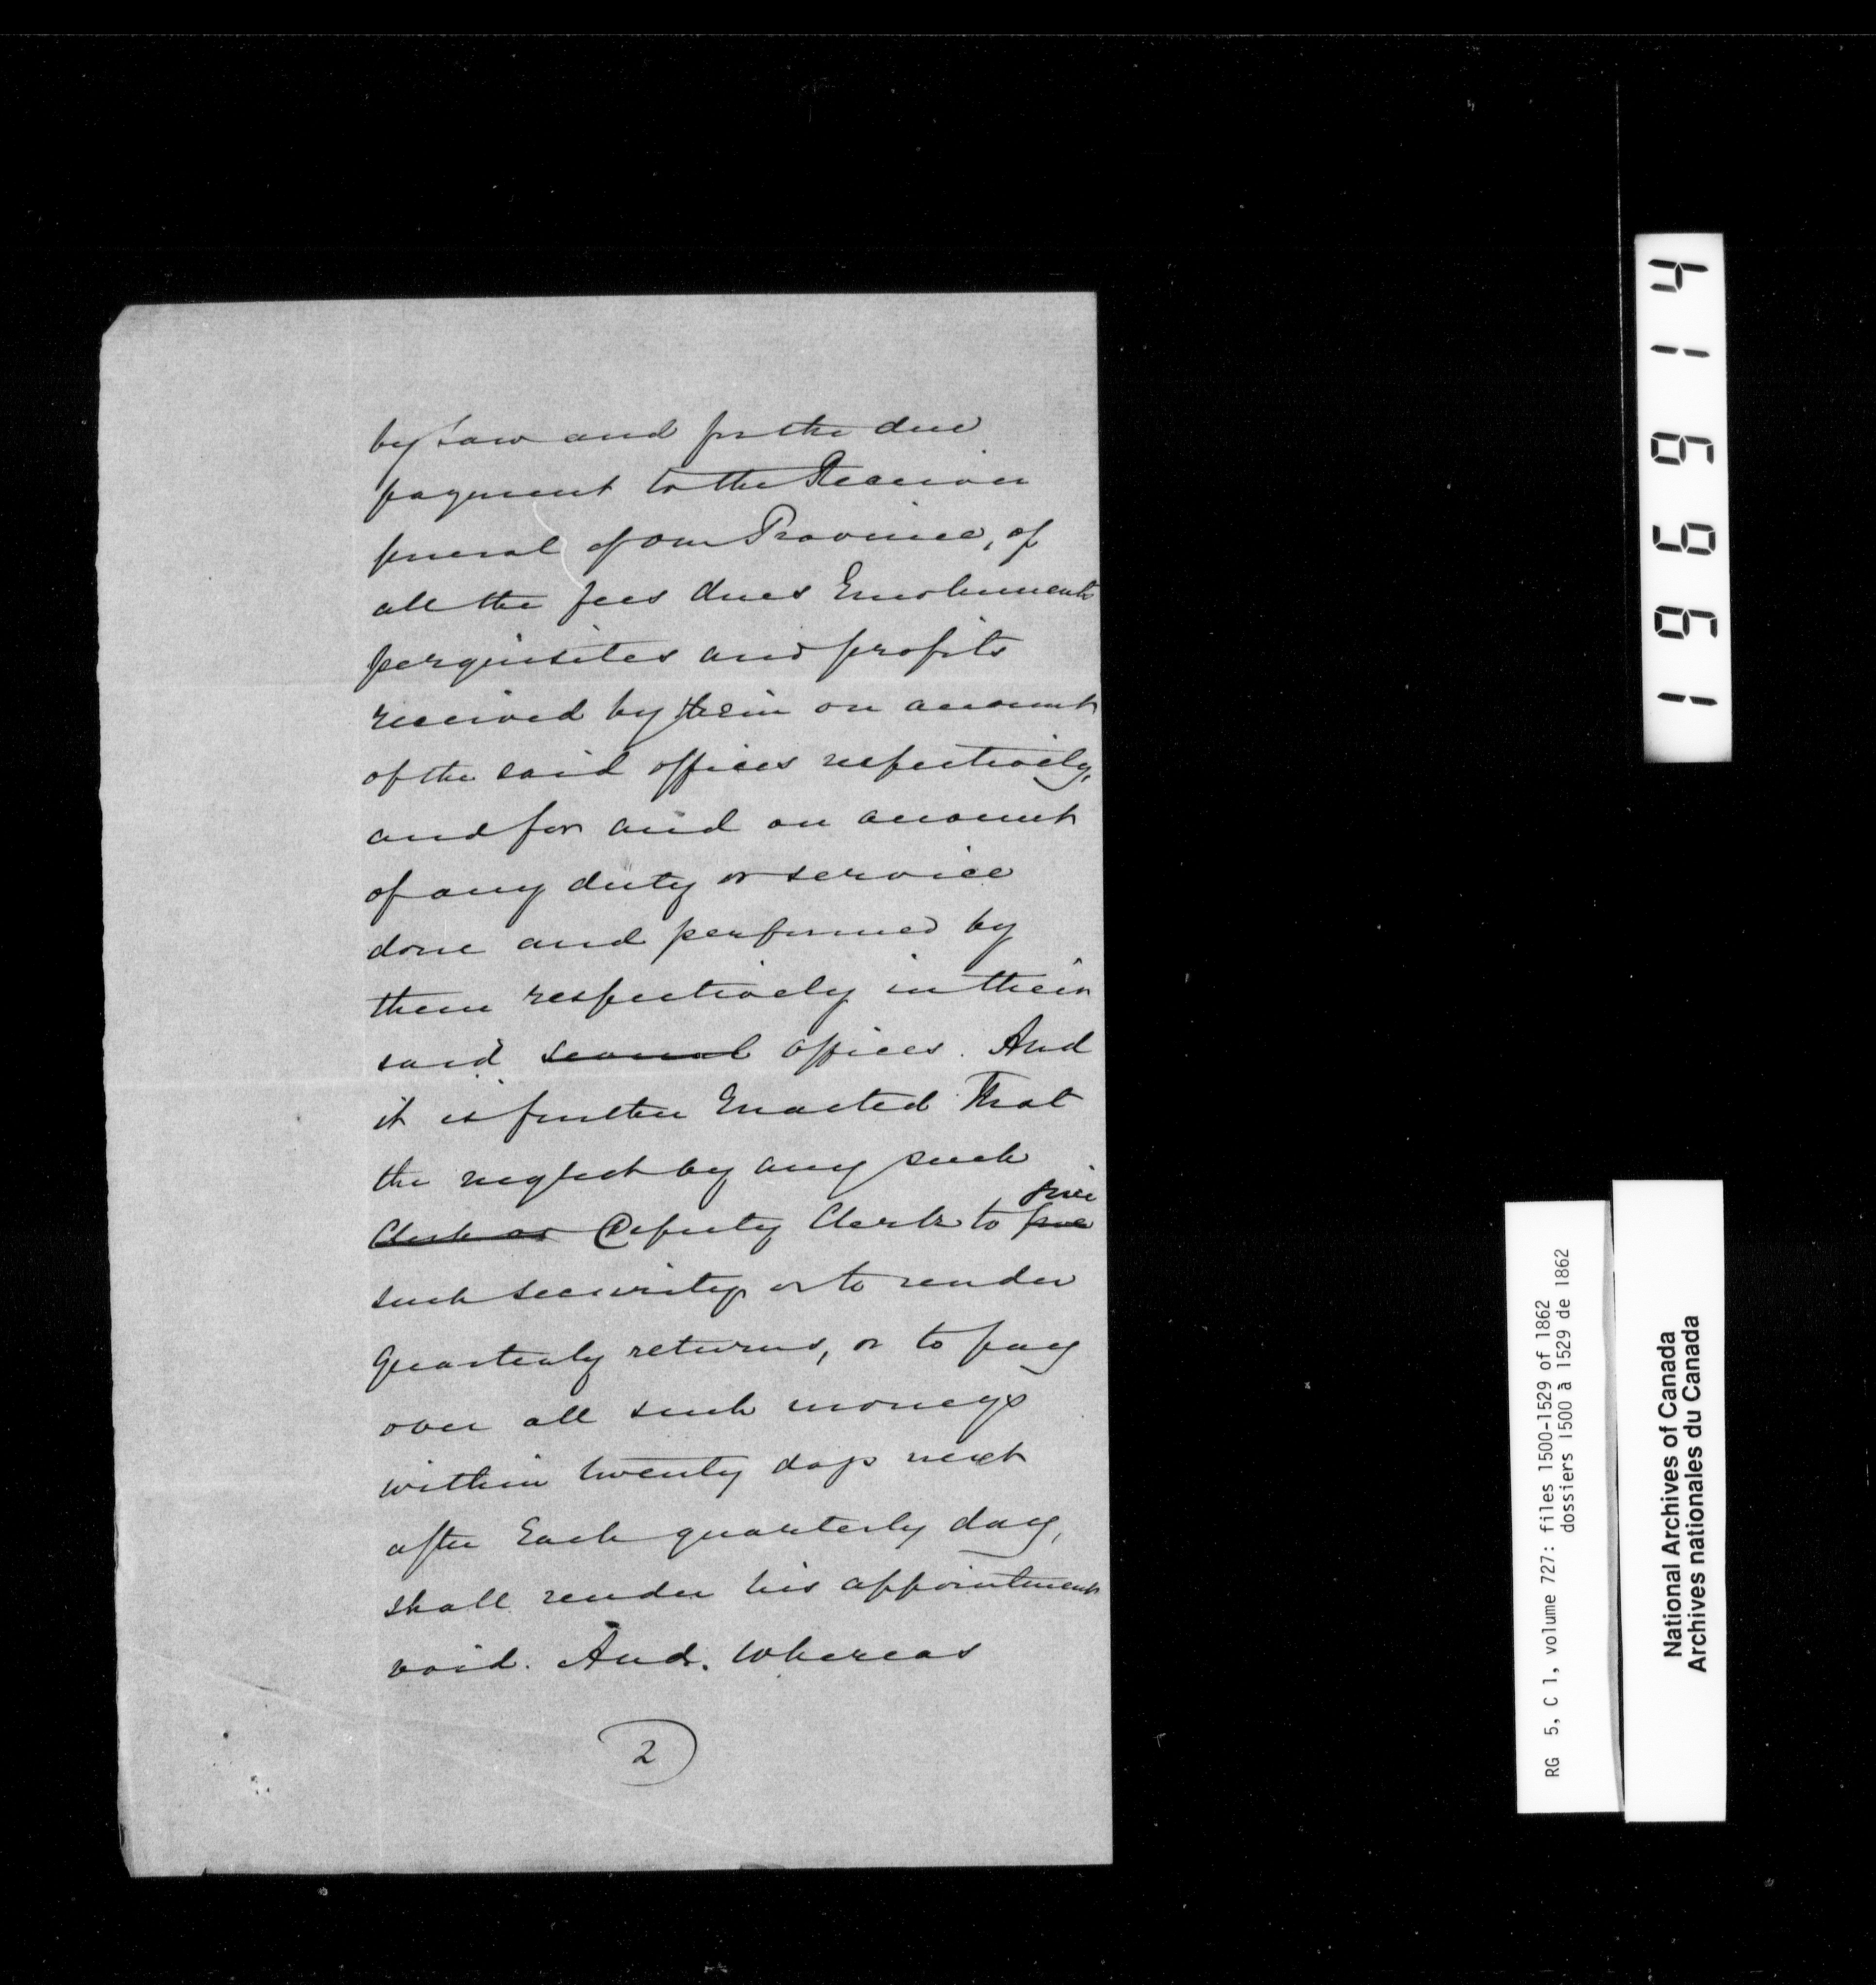 by Law and for the due
payment to the Receiver
General of our Province, of
all the fees dues Emoluments
perquisites and profits
received by them on account
of the said offices respectively,
and for and on account
of any duty or service
done and performed by
them respectively in their
said several offices. And
it is further Enacted That
the neglect by any such
give
Clerk or Deputy Clerk to give
such security or to render
quarterly returns, or to pay
over all such moneys
within twenty days next
after Each quarterly day,
shall render his appointment
void. And. Whereas
2
196914
RG 5, C 1, volume 727: files 1500-1529 of 1862
dossiers 1500 à 1529 de 1862
National Archives of Canada
Archives nationales du Canada